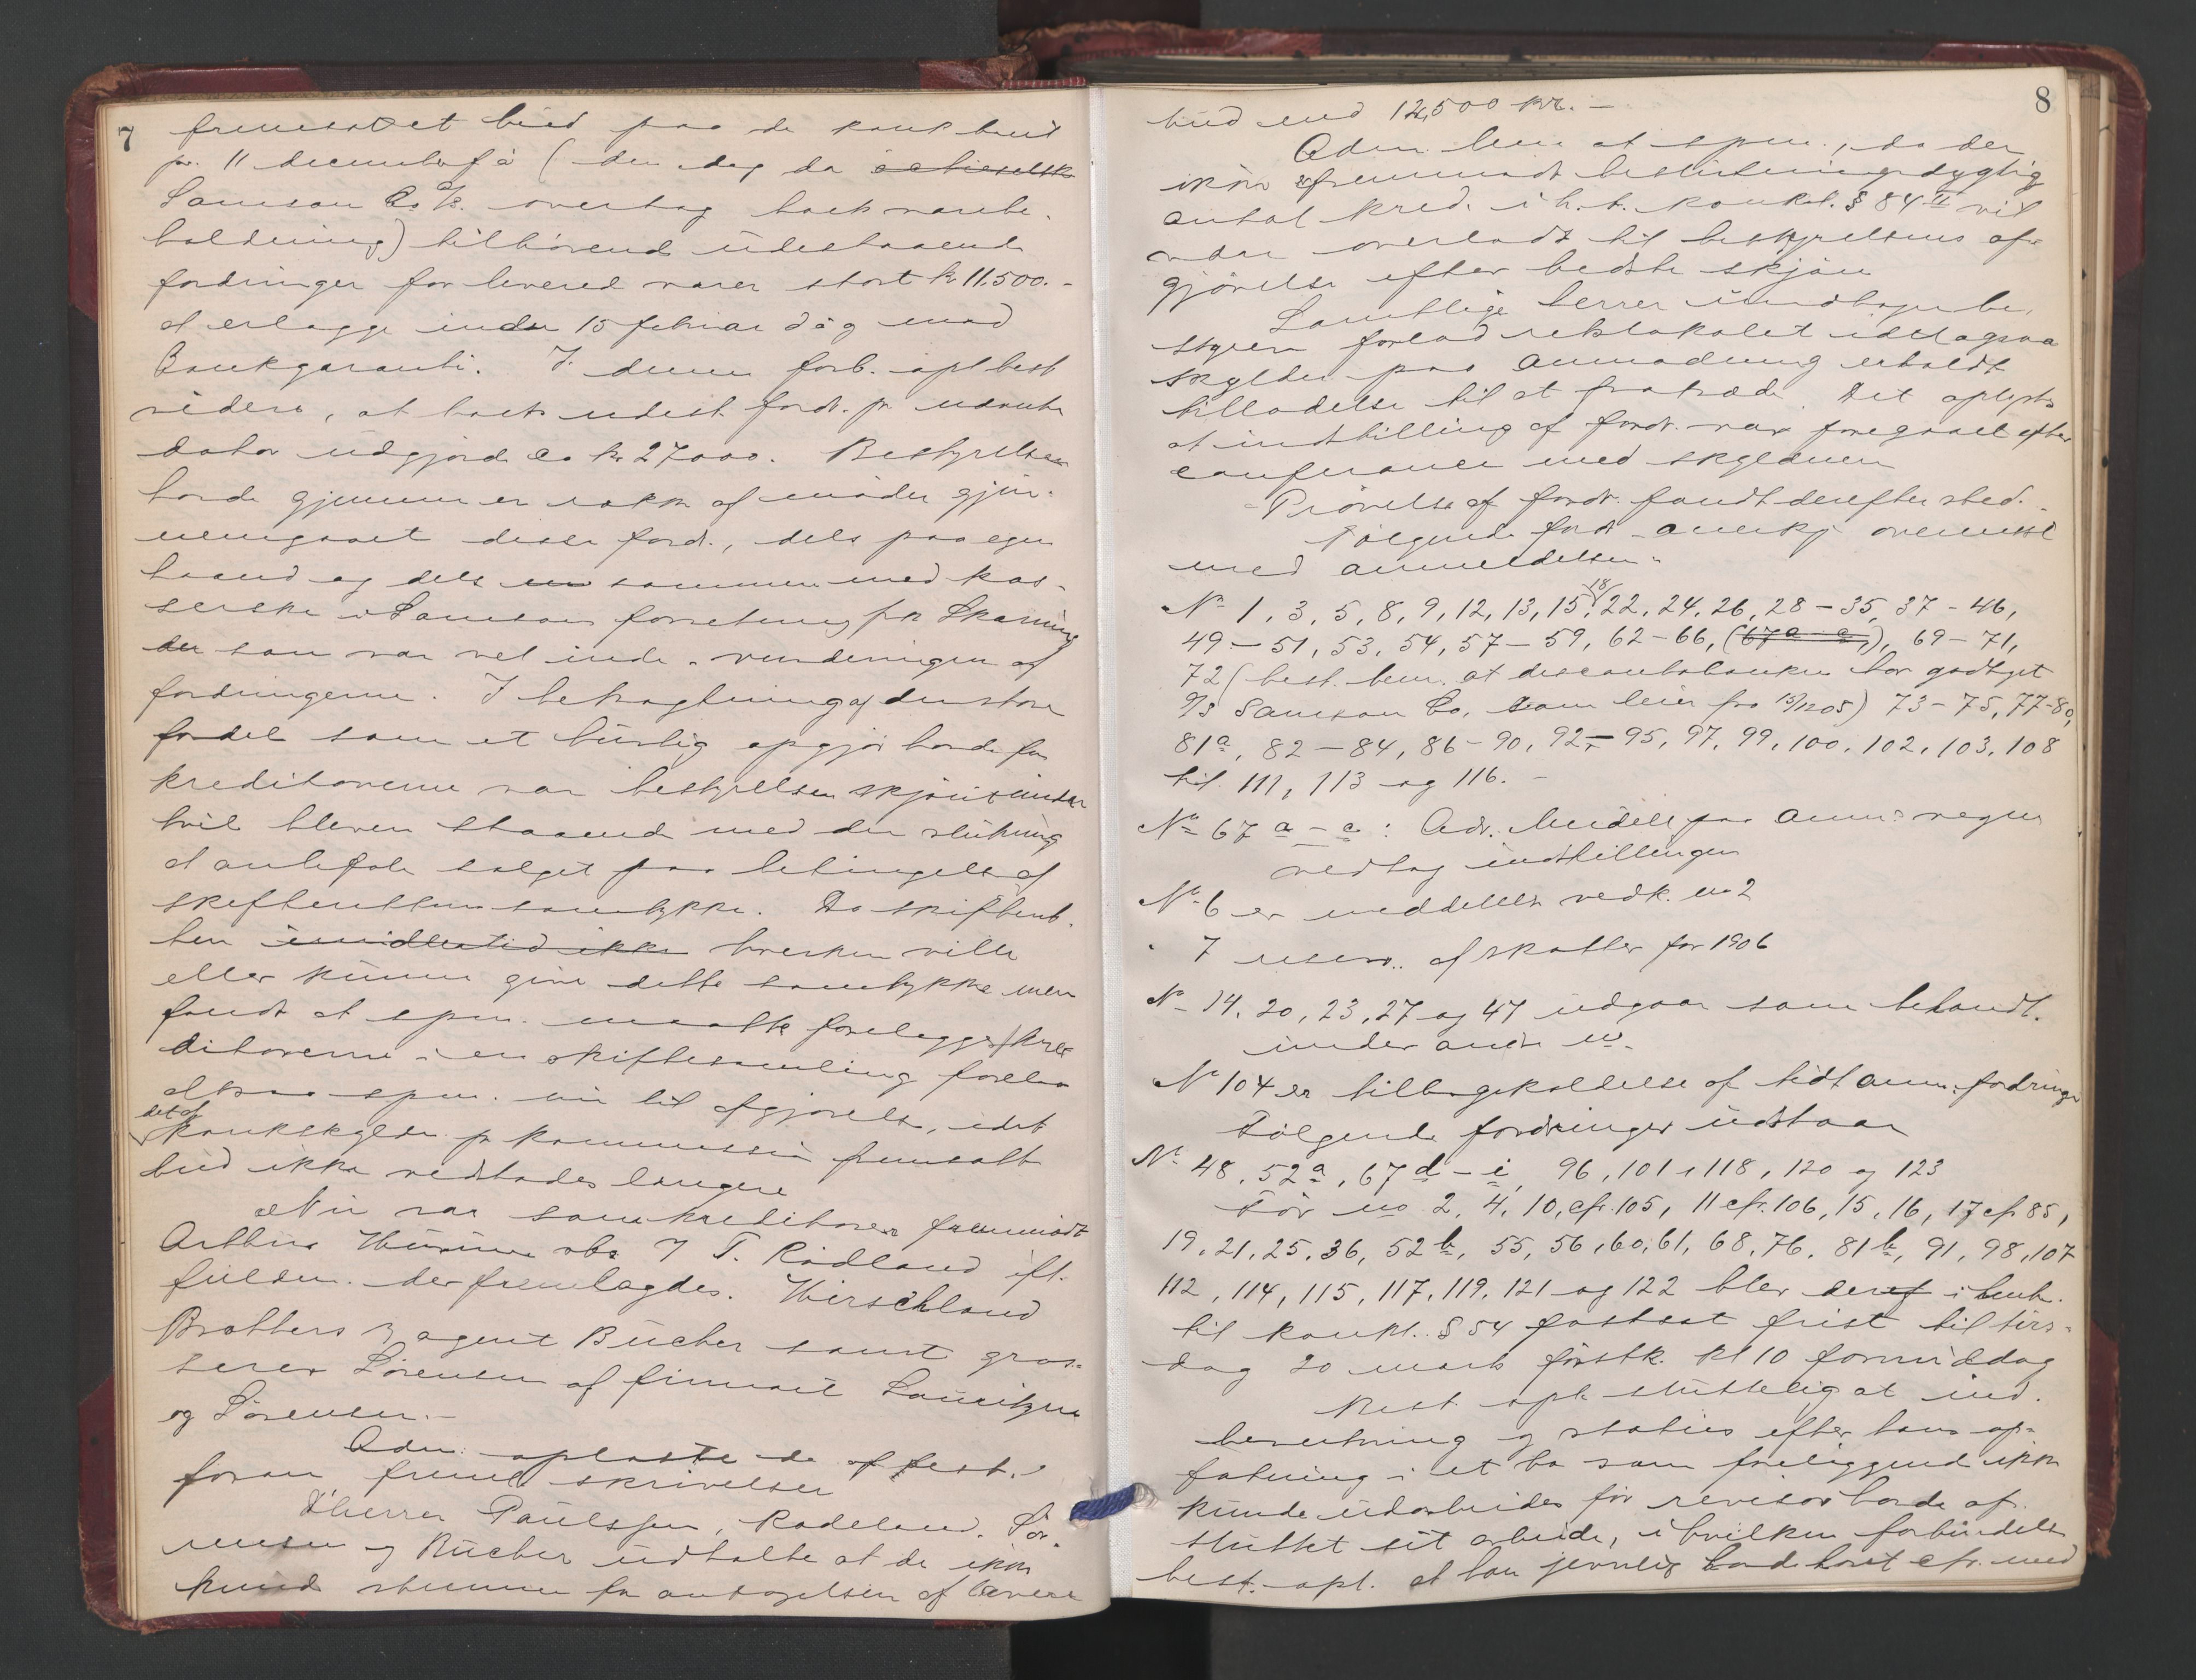 7
fremsat et bud paa de konk.bud
pr. 11 december f. å (den dag da actieselsk
Samson Co A/S. overtog boets varebe-
holdning) tilhørende udestaaende
fordringer for leverede varer stort kr 11.500.-
at erlægge inden 15 februar d å g mod
Bankgaranti. I denne forb. opl best
videre, at boets udest. fordr. pr nævnte
dato udgjorde ca kr 27000. Bestyrelsen
havde gjennem en række af møder gjen-
nemgaaet disse fordr., dels paa egen
haand og dels sammen med kas-
serske i Samsons forretning frk Skaning
der som var vel inde i vurderingen af
fordringerne. I betragtning af den store
fordel som et hurtig opgjør havde for
kreditorerne var bestyrelsen skjønt under
tvil bleven staaende med den slutning
at anbefale salget paa betingelse af
skifterettens samtykke. Da skifteret-
ten imidlertid ikke hverken ville
eller kunne give dette samtykke men
fandt at spm. maatte forelægges kre-
ditorerne i en skiftesamling forelaa
altsaa spm. nu til afgjørelse, idet
det af
konkskyldn. pr kommission fremsatte
bud ikke vedstodes længere
Nu var som kreditorer fremmødt
Arthur vbo J T. Rødland ifl.
fuldm. der fremlagdes. Hirschland
Brothers v agent Bücher samt gros-
serer Sørensen af firmaet Lauritzen
og Sørensen.-
Adm. oplæste de af best.
foran fremlagte skrivelser
D'herrer Paulssen, Rødland, Sør-
ensen og Bücher udtalte at de ikke
kunde stemme for antagelsen af lavere
8
bud end 12,500 kr. -
Adm. bem. at spm., da der
ikke er fremmødt beslutningsdygtig
antal kred. i h. t. konkl. § 84 II vil
være overladt til bestyrelsens af-
gjørelse efter bedste skjøn
Samtlige herrer undtagen be-
styreren forlod retslokalet idet ogsaa
skyldn. paa anmodning erholdt
tilladelse til at fratræde. Det oplystes
at indstilling af fordr. var foregaaet efter
conferance med skyldneren
Prøvelse af fordr. fandt derefter sted.
Følgende fordr anerkj overensst
med anmeldelsen:
18
No 1, 3, 5, 8, 9, 12, 13, 15, 22, 24, 26, 28 - 35, 37 - 46,
49 - 51, 53, 54, 57 - 59, 62 - 66, (67 a - c), 69 - 71,
72 (best. bem. at discontobanken har godtgjt
A/S Samson Co. som leier fra 13/12 05) 73 - 75, 77-80,
81a, 82 - 84, 86 - 90, 92 - 95, 97, 99, 100, 102, 103, 108
til 111, 113 og 116. -
No 67 a - c : Adv. Meidell paa anm: vegne
vedtog indstillingen
No 6 er meddelelse vedk. no 2
7 reserv. af skatter for 1906
No 14, 20, 23, 27 og 47 udgaar som behandt.
under andre no.
No 104 er tilbagekaldelse af tidl anm. fordringer
Følgende fordringer udstaar
No 48, 52 a, 67 d - i, 96, 101, 118, 120 og 123
For no 2, 4, 10, cfr. 105, 11 cfr. 106, 15, 16, 17 cfr 85,
19, 21, 25, 36, 52 b, 55, 56, 60, 61, 68, 76, 81 b, 91, 98, 107
112, 114, 115, 117, 119, 121 og 122 blev deref i henh.
til konkl. § 54 fastsat frist til tirs-
dag 20 marts førstk. kl 10 formiddag
Best. opl. sluttelig at ind-
beretning og status efter hans op-
fatning i et bo som foreliggende ikke
kunde udarbeides før revisor havde af-
sluttet sit arbeide, i hvilken forbindelse
best. opl. at han jevnlig havde havt cfr. med